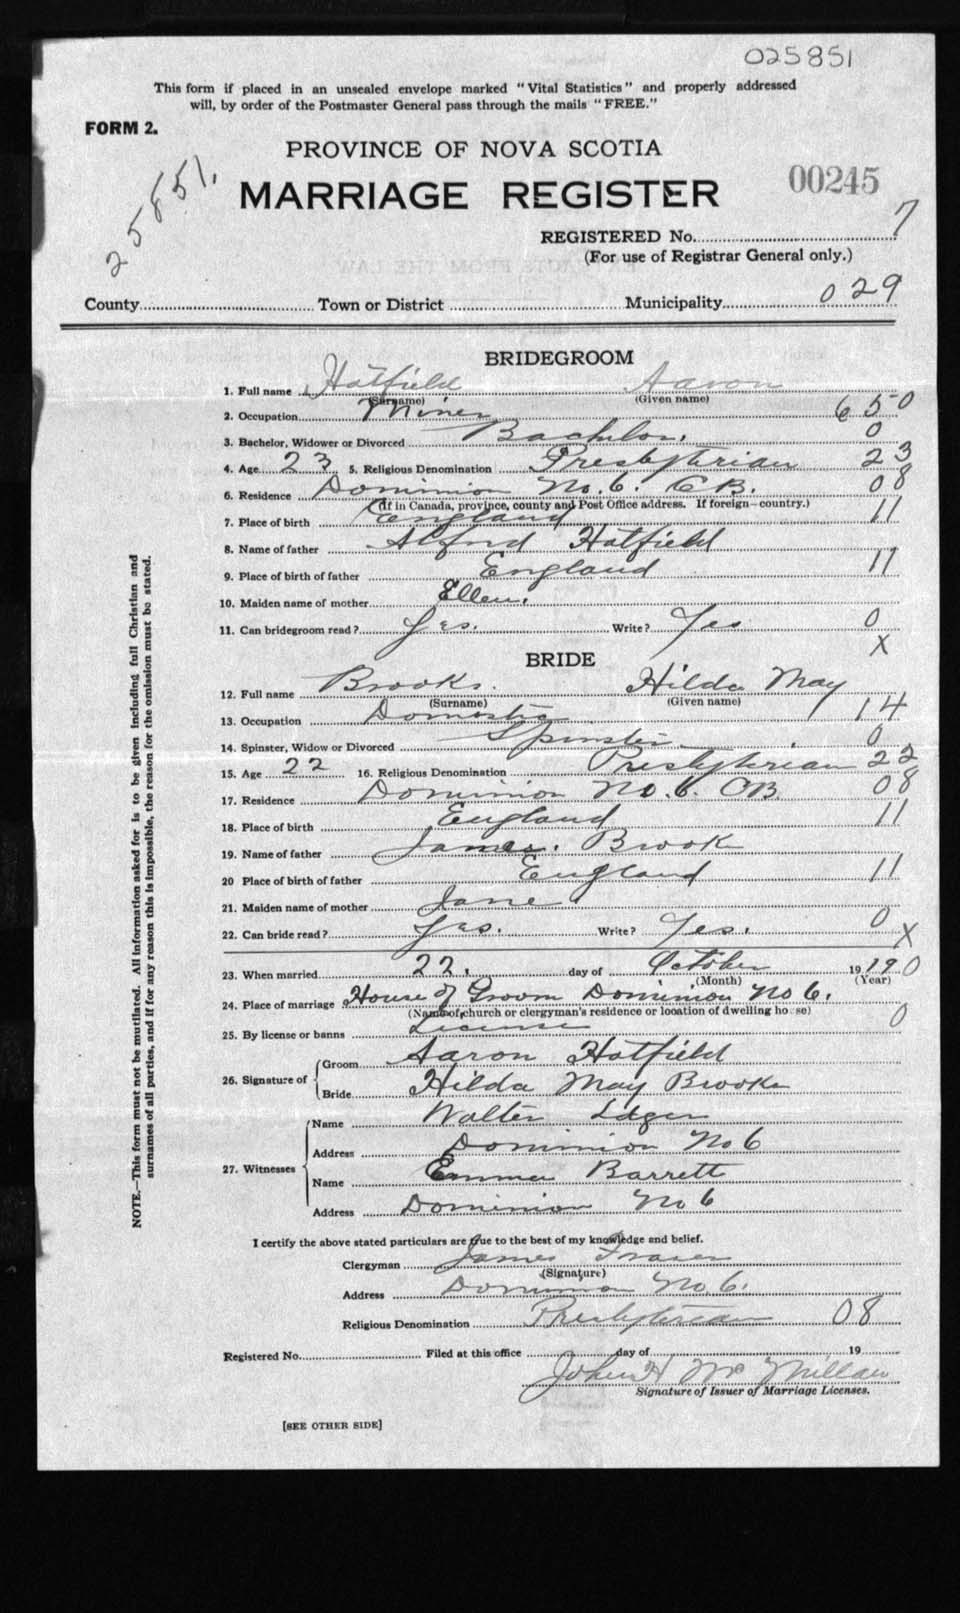 025851
This form if placed in an unsealed envelope marked "Vital Statistics" and properly addressed
will, by order of the Postmaster General pass through the mails "FREE."
FORM 2.
PROVINCE OF NOVA SCOTIA
25851.
MARRIAGE REGISTER 00245
REGISTERED No. 7
(For use of Registrar General only.)
County Town or District Municipality 029
BRIDEGROOM
1. Full name Hatfield Aaron
(Surname) (Given name)
2. Occupation Miner 650
3. Bachelor, Widower or Divorced Bachelor. 0
4. Age 23 5. Religious Denomination Presbyterian 23
6. Residence Dominion No. 6. CB. 08
(If in Canada, province, county and Post Office address. If foreign—country.)
7. Place of birth England 11
8. Name of father Alfred Hatfield
9. Place of birth of father England 11
10. Maiden name of mother Ellen.
11. Can bridegroom read? Yes. Write? Yes 0
X
BRIDE
12. Full name Brooks. Hilda May
(Surname) (Given name)
13. Occupation Domestic 14
14. Spinster, Widow or Divorced Spinster 0
15. Age 22 16. Religious Denomination Presbyterian 22
17. Residence Dominion No. 6. CB. 08
18. Place of birth England 11
19. Name of father James. Brook
20 Place of birth of father England 11
21. Maiden name of mother Jane
22. Can bride read? Yes. Write? Yes. 0
X
23. When married 22. day of October 1919 0
(Month) (Year)
24. Place of marriage House of Groom Dominion No 6.
(Name of church or clergyman's residence or location of dwelling house)
25. By license or banns License 0
26. Signature of Groom Aaron Hatfield
Bride Hilda May Brooks
27. Witnesses Name Walter
Address Dominion No 6
Name Emma Barrett
Address Dominion No 6
I certify the above stated particulars are true to the best of my knowledge and belief.
Clergyman James Fraser
(Signature)
Address Dominion No. 6.
Religious Denomination Presbyterian 08
Registered No. Filed at this office day of 19
John H McMillan
Signature of Issuer of Marriage Licenses.
[SEE OTHER SIDE]
NOTE.—This form must not be mutilated. All information asked for is to be given including full Christian and
surnames of all parties, and if for any reason this is impossible, the reason for the omission must be stated.